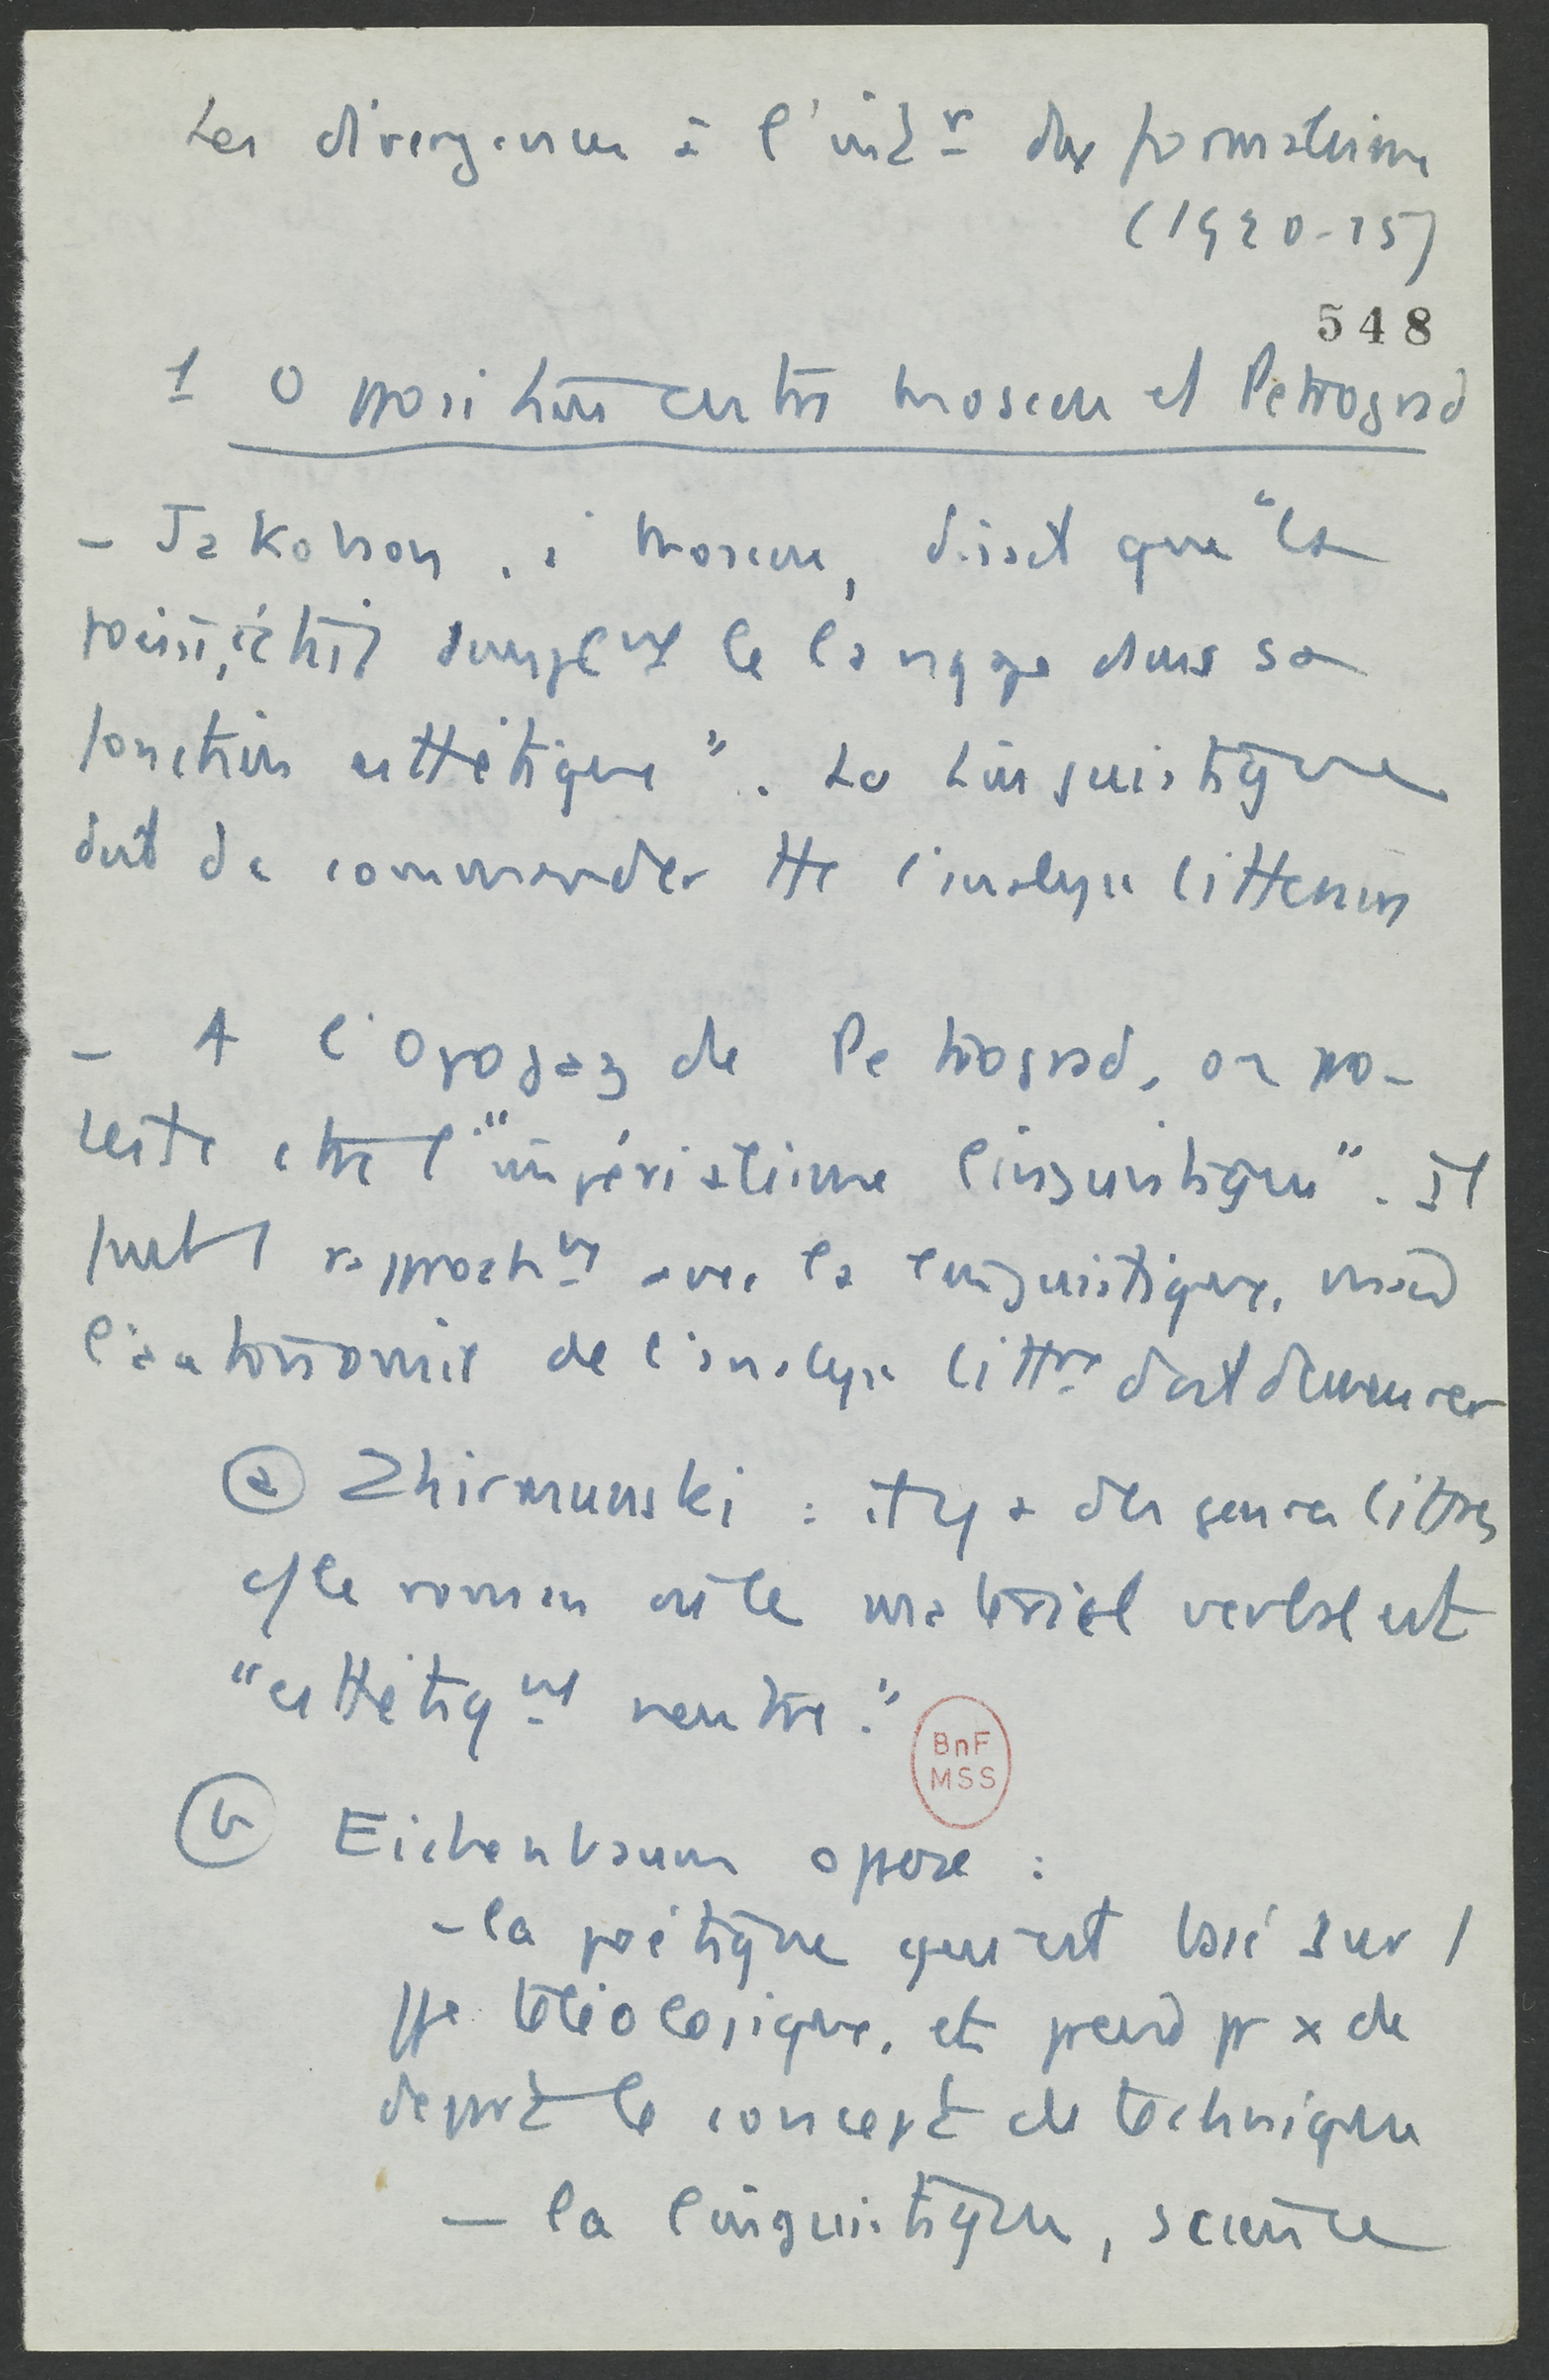 Les divergences à l'intr du formalisme
(1920-25)
548
1 Opposition entre Moscou et Petrograd
- Jakobson, à Moscou, disait que "la
poésie, c'était simplemt le langage dans sa
fonction esthétique". La Linguistique
doit dc commander tte l'analyse littéraire
- A l'Opojaz de Petrograd, on pro-
teste ctre l'"impérialisme linguistique". Il
faut 1 rapprochmt avec la linguistique, mais
l'autonomie de l'analyse littre doit demeurer
a Zhirmunski : il y a des genres littres
cf le roman où le matériel verbal est
"esthétiqmt neutre."
BnF
MSS
b Eichenbaum oppose :
- la poétique qui est basé sur 1
ppe téléologique, et prend pr x de
départ le concept de technique
- la linguistique, science